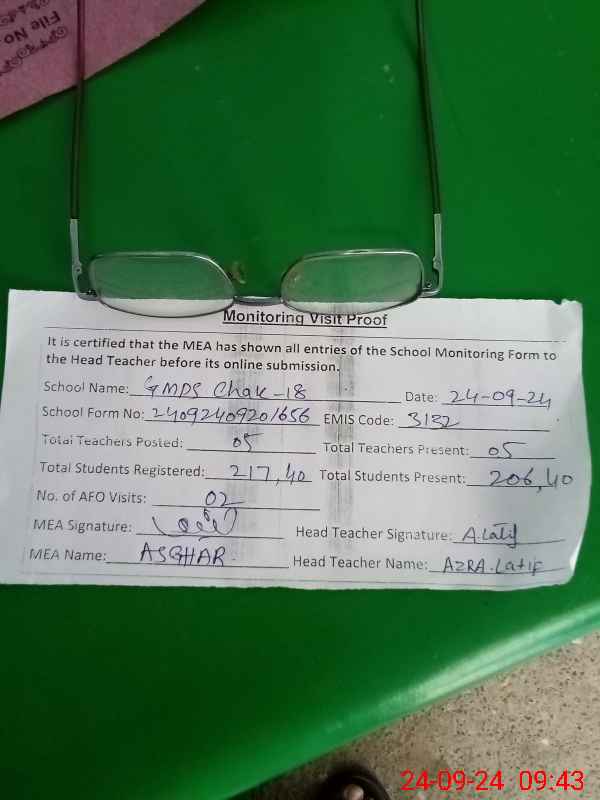 File No
Monitoring Visit Proof
It is certified that the MEA has shown all entries of the School Monitoring Form to
the Head Teacher before its online submission.
School Name: GMPS Chak-18 Date: 24-09-24
School Form No: 24092409201656 EMIS Code: 3132
Total Teachers Posted: 05 Total Teachers Present: 05
Total Students Registered: 217,40 Total Students Present: 206,40
No. of AFO Visits: 02
MEA Signature: Head Teacher Signature: A.Latif
MEA Name: ASGHAR. Head Teacher Name: AZRA.Latif
24-09-24 09:43